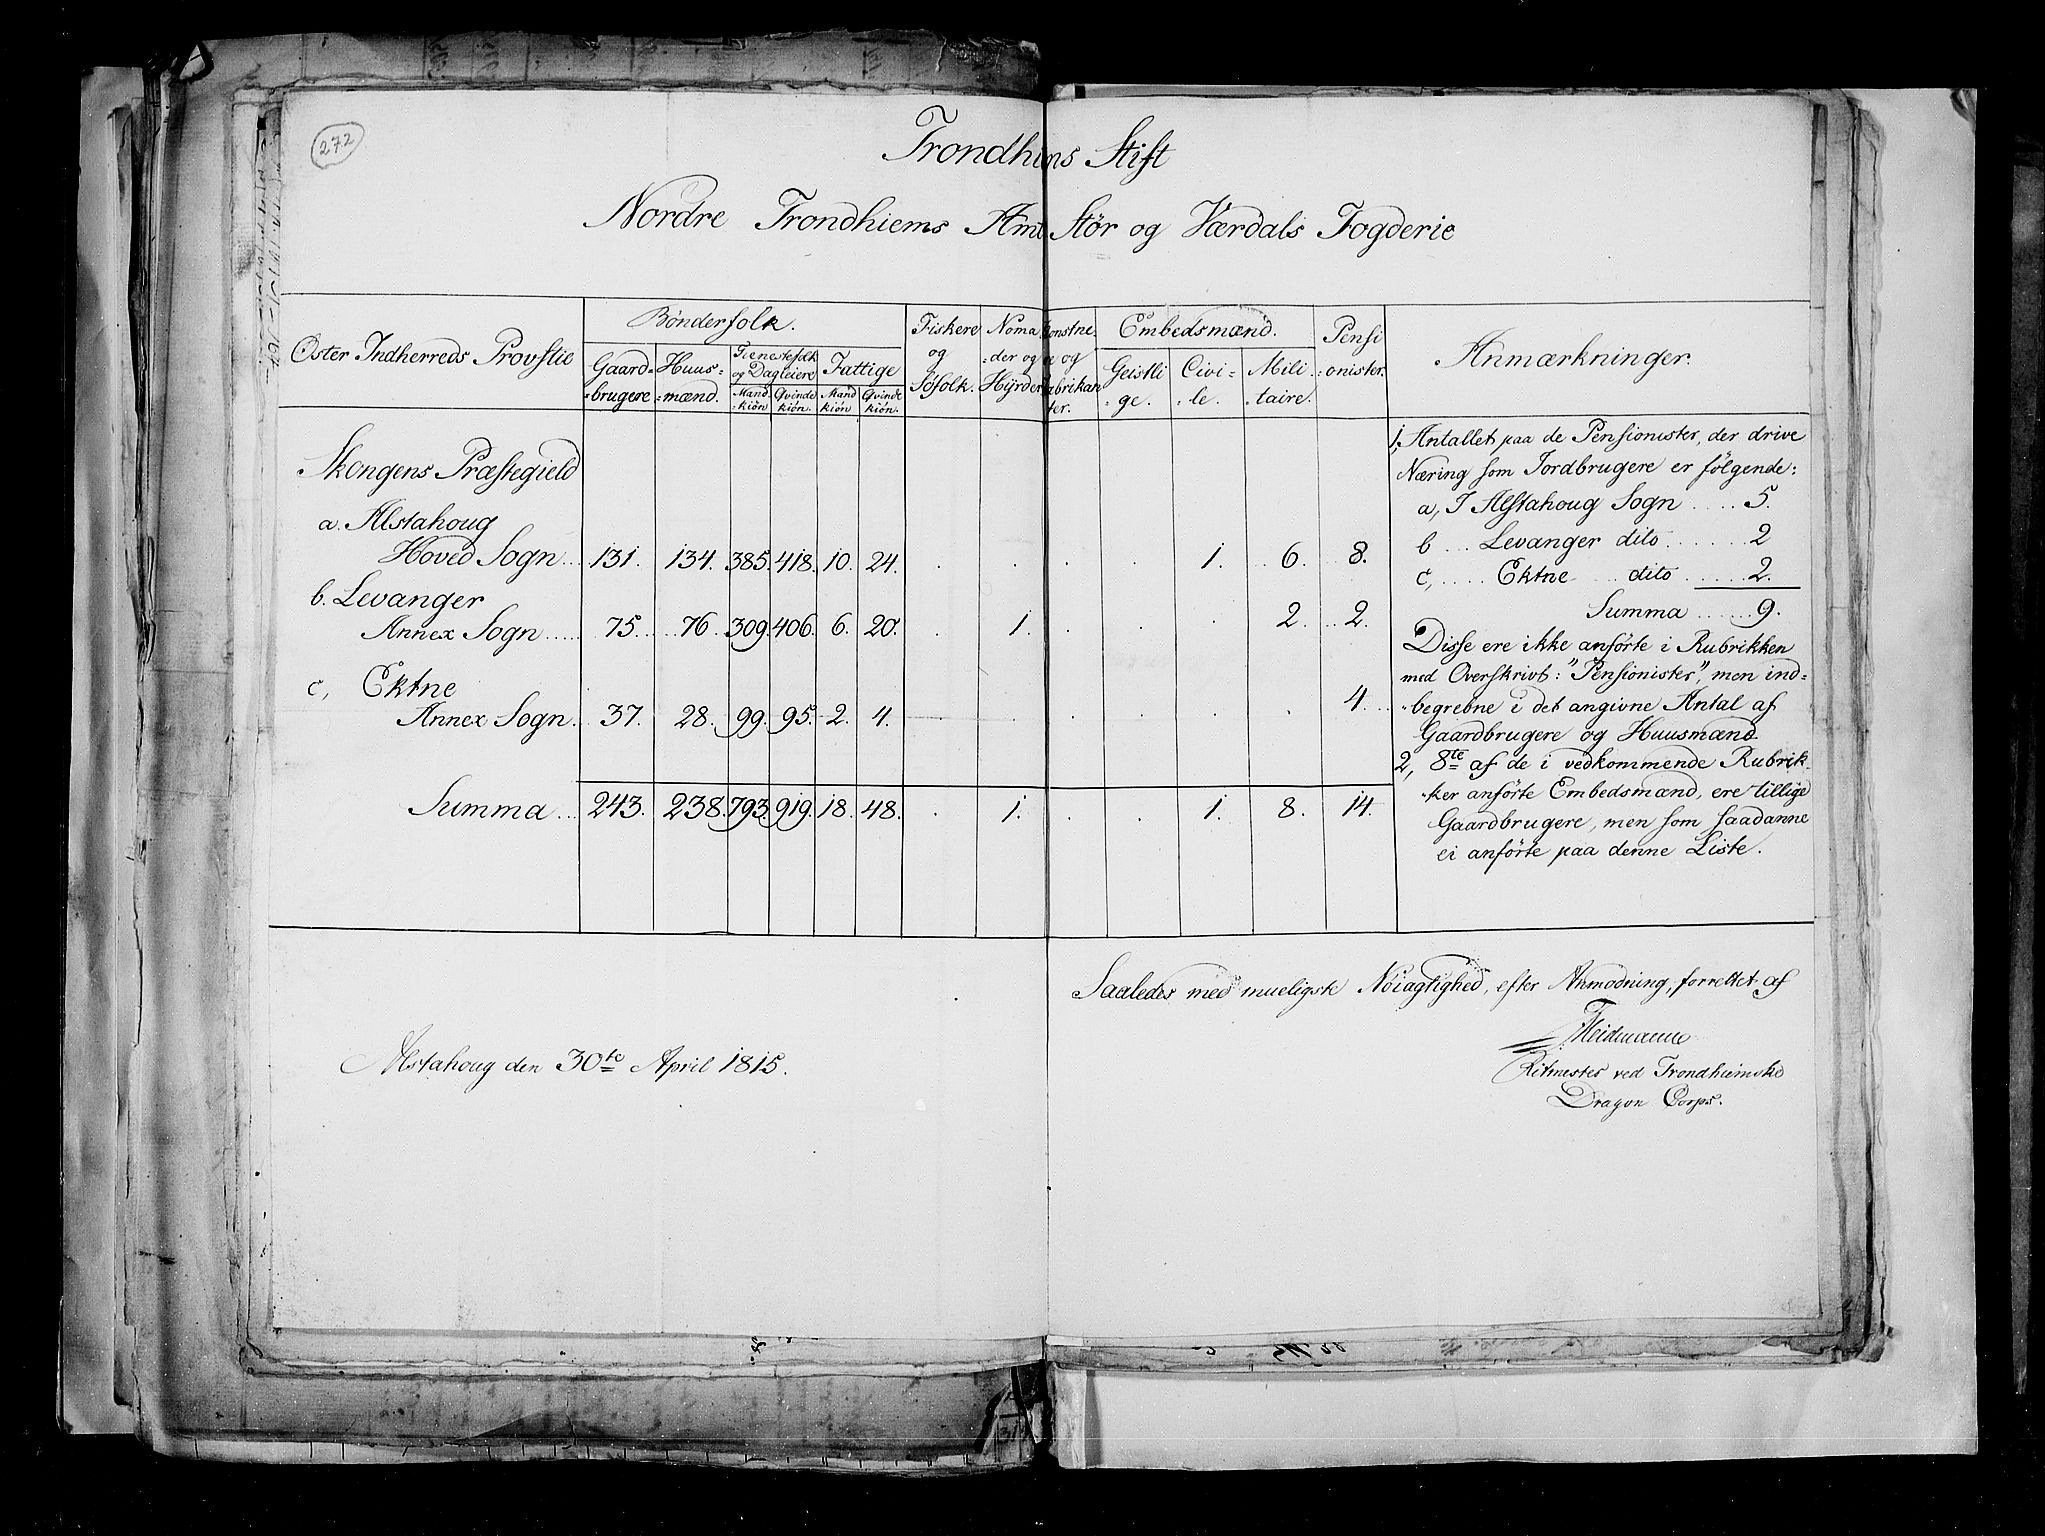 272
Trondhiens Stift
Nordre Trondhiems Amt Stør og Værdals Fogderie
Øster Indherreds Provstie
Bønderfolk.
Gaard-
-brugere
Huus-
-mænd.
Tienestefolk
og Dagleiere
Mand
-kiøn
Qvinde
kiøn.
Fattige
Mand
kiøn
Qvinde
kiøn.
Fiskere
og
Søfolk.
Noma
-der og
Hyrder
Konstne-
re og
Fabrikan
ter.
Embedsmænd.
Geistli
-ge.
Civi-
-le.
Mili
-taire.
Pensi
-onister.
Anmærkninger.
Skongens Præstegield
a. Alstahoug
Hoved Sogn... 131. 134. 385. 418. 10. 24. . . . . 1. 6. 8.
b. Levanger
Annex Sogn..... 75. 76. 309. 406. 6. 20. . 1. . . . 2. 2.
c, Ektne
Annex Sogn. 37. 28. 99. 95. 2. 4. . . . . . . 4.
Summa... 243. 238. 793. 919. 18. 48. . 1. . . 1. 8. 14.
1, Antallet paa de Pensionister, der drive
Næring som Jordbrugere er følgende:
a, I Alstahoug Sogn .... 5.
b ... Levanger dito ...... 2
c, ..... Ektne ... dito ...... 2.
Summa ...... 9.
Disse ere ikke anførte i Rubrikken
med Overskrivt: "Pensionister", men ind-
-begrebne i det angivne Antal af
Gaardbrugere og Huusmænd
2, 8te af de i vedkommende Rubrik-
-ker anførte Embedsmænd, ere tillige
Gaardbrugere, men som saadanne
ei anførte paa denne Liste.
Saaledes med mueligste Nøiagtighed, efter Anmodning, forrettet af
Heidmanne
Ritmester ved Trondhiemske
Dragon Corps.
Alstahoug den 30te April 1815.